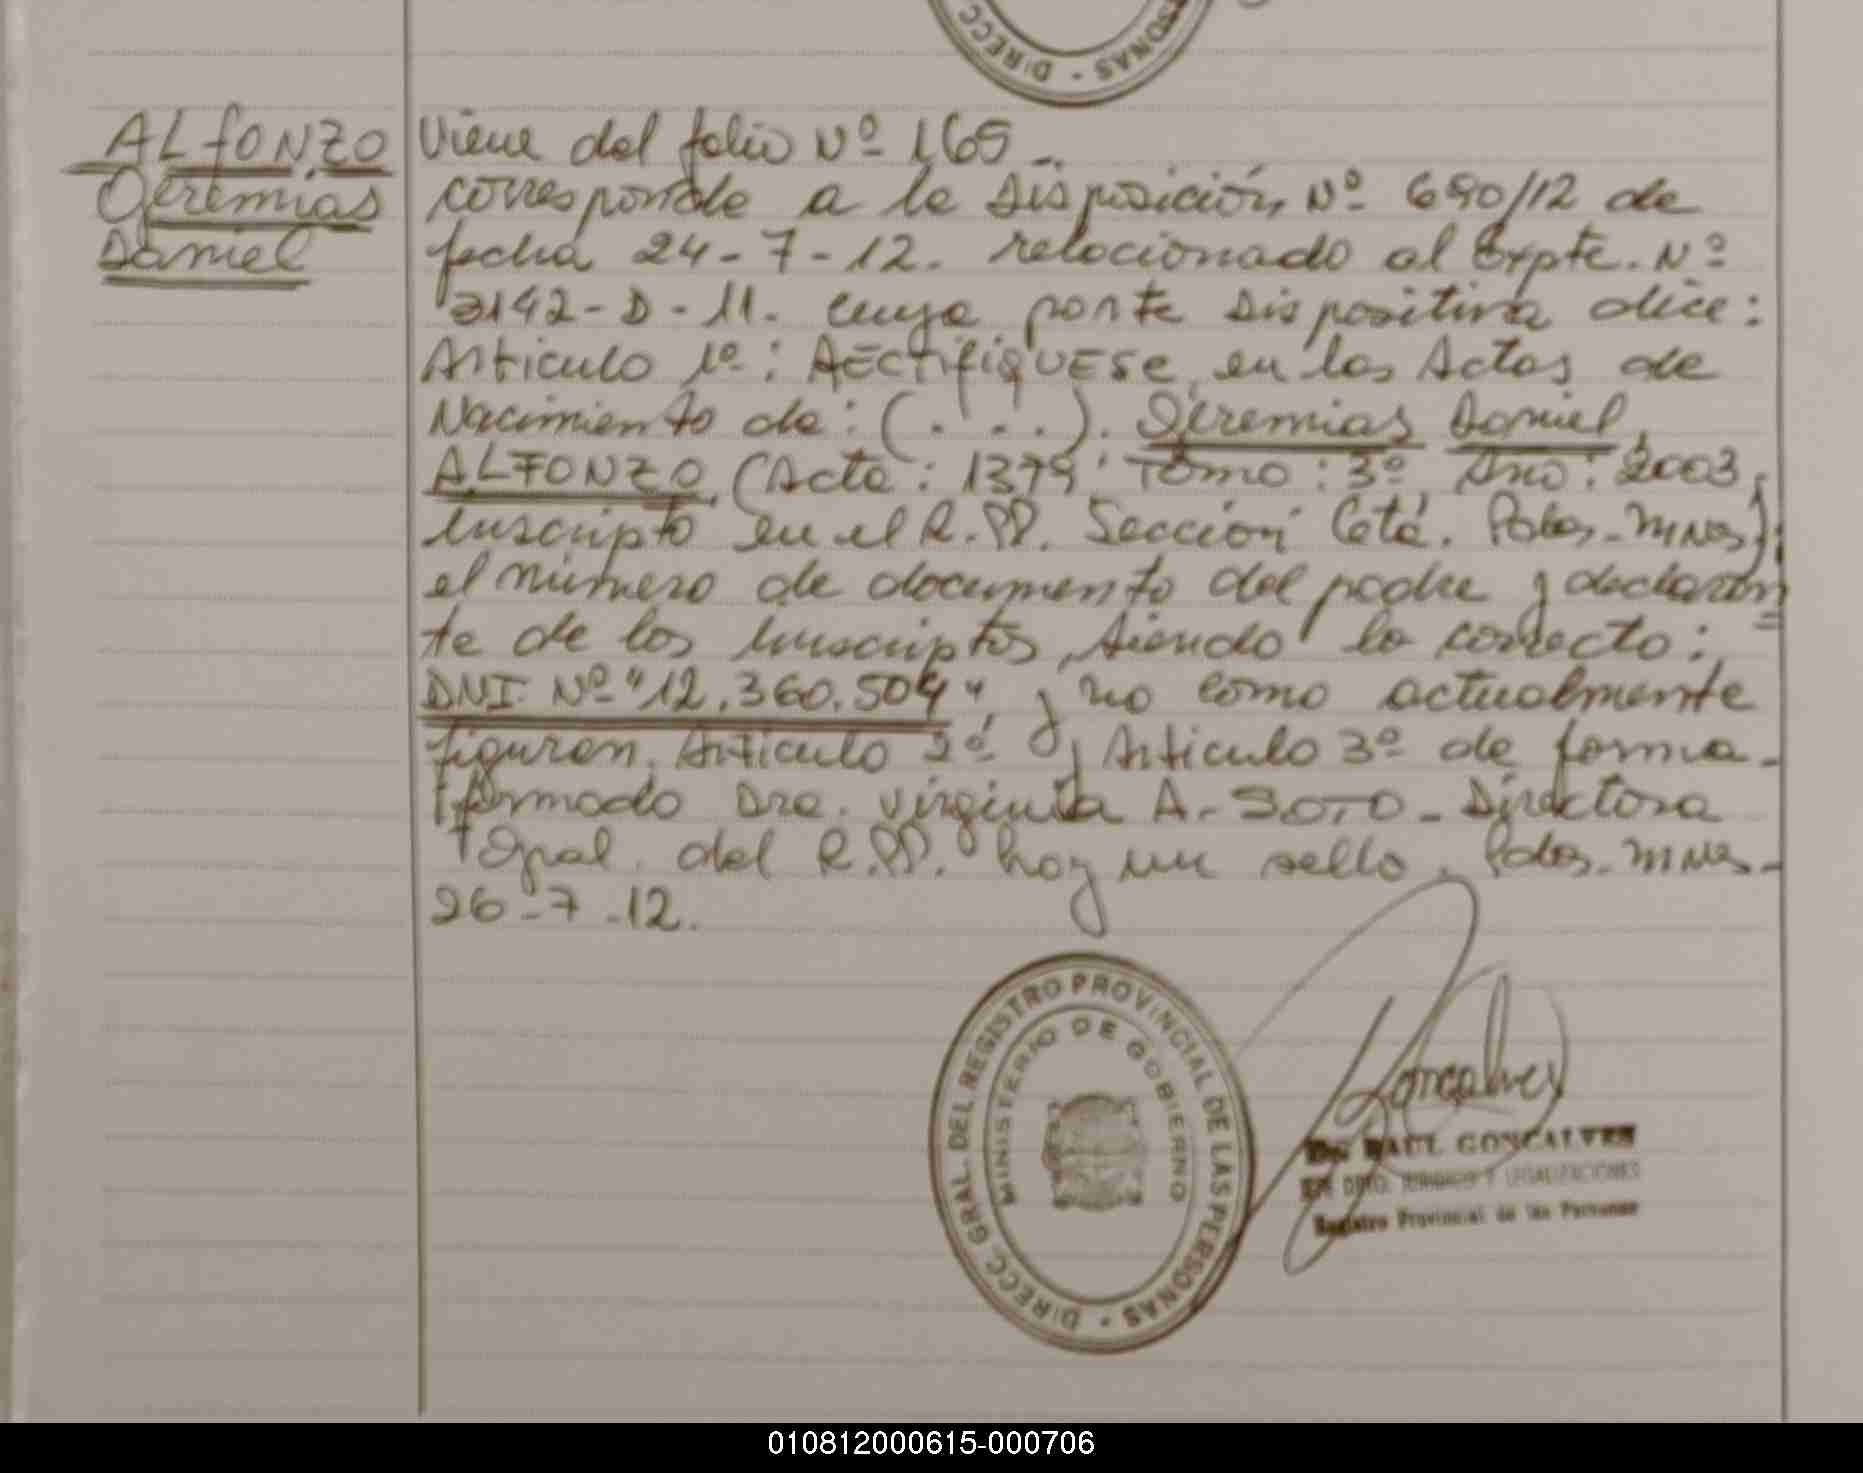 DIRECC PERSONAS -
ALFONZO
Jeremias
Daniel
Viene del folio Nº 165 -.
corresponde a la Disposición, Nº 690/12 de
fecha 24-7-12. relacionado al Expte. Nº
3142-D-11. cuya parte Dispositiva dice:
Articulo 1º: RECTIFIQUESE, en las Actas de
Nacimiento de: (...). Jeremias Daniel
ALFONZO, (Acta: 1379 Tomo: 3º Año: 2003,
Inscripto en el R.PP. Sección Ctá. Pdas-Mnes);
el número de documento del padre y declaran=
te de los Inscriptos, siendo lo correcto:
DNI Nº "12.360.504" y no como actualmente
figuran. Articulo 2º y Articulo 3º de forma-
firmado Dra. Virginia A. SOTO - Directora
Gral. del R.PP. hay un sello. Pdas-Mnes-
26-7-12.
DIRECC. GRAL. DEL REGISTRO PROVINCIAL DE LAS PERSONAS -
MINISTERIO DE GOBIERNO
Goncalves
Dr. RAUL GONCALVES
DPTO. JURIDICO Y LEGALIZACIONES
Registro Provincial de las Personas
010812000615-000706